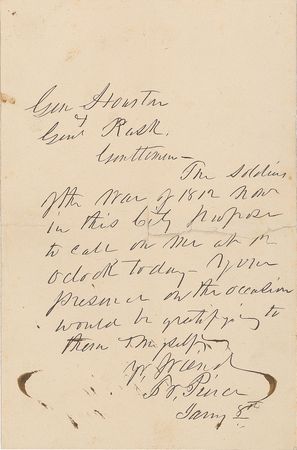 Gen Houston
&
Genl Rusk.
Gentlemen—
The Soldiers
of the War of 1812 now
in this City propose
to call on me at
o'clock today— Your
presence on the occasion
would be gratifying to
them & myself
Yr friend
Pierce
Jany 8th